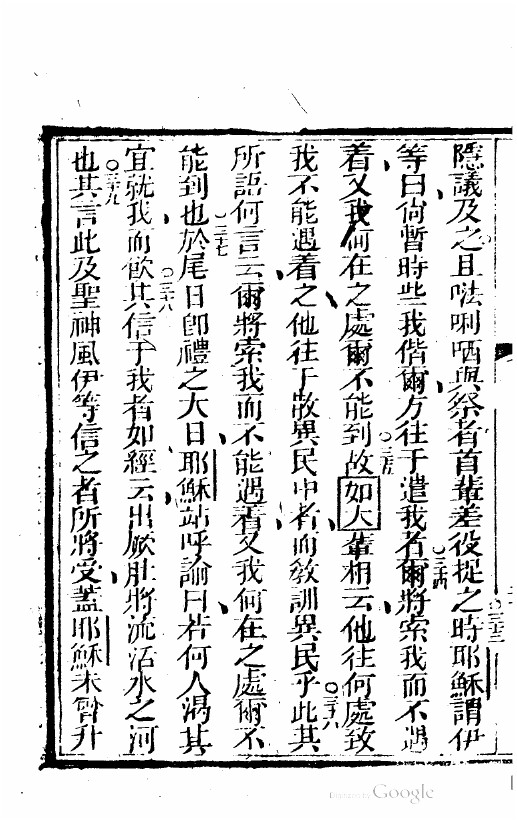 隱議及之且㗭唎哂與祭者首輩差役捉之時耶穌謂伊
等曰尙暫時些我偕爾方往于遣我者爾將索我而不遇
着又我何在之處爾不能到故如大輩相云他往何處致
我不能遇着之他往于散異民中者而敎訓異民乎此其
所語何言云爾將索我而不能遇着又我何在之處爾不
能到也於尾日卽禮之大日耶穌站呼諭曰若何人渴其
宜就我而飲其信于我者如經云出厥肚將流活水之河
也其言此及聖神風伊等信之者所將受蓋耶穌未曾升
三十三
三十四
三十五
三十六
三十七
三十八
三十九
Digitized by Google